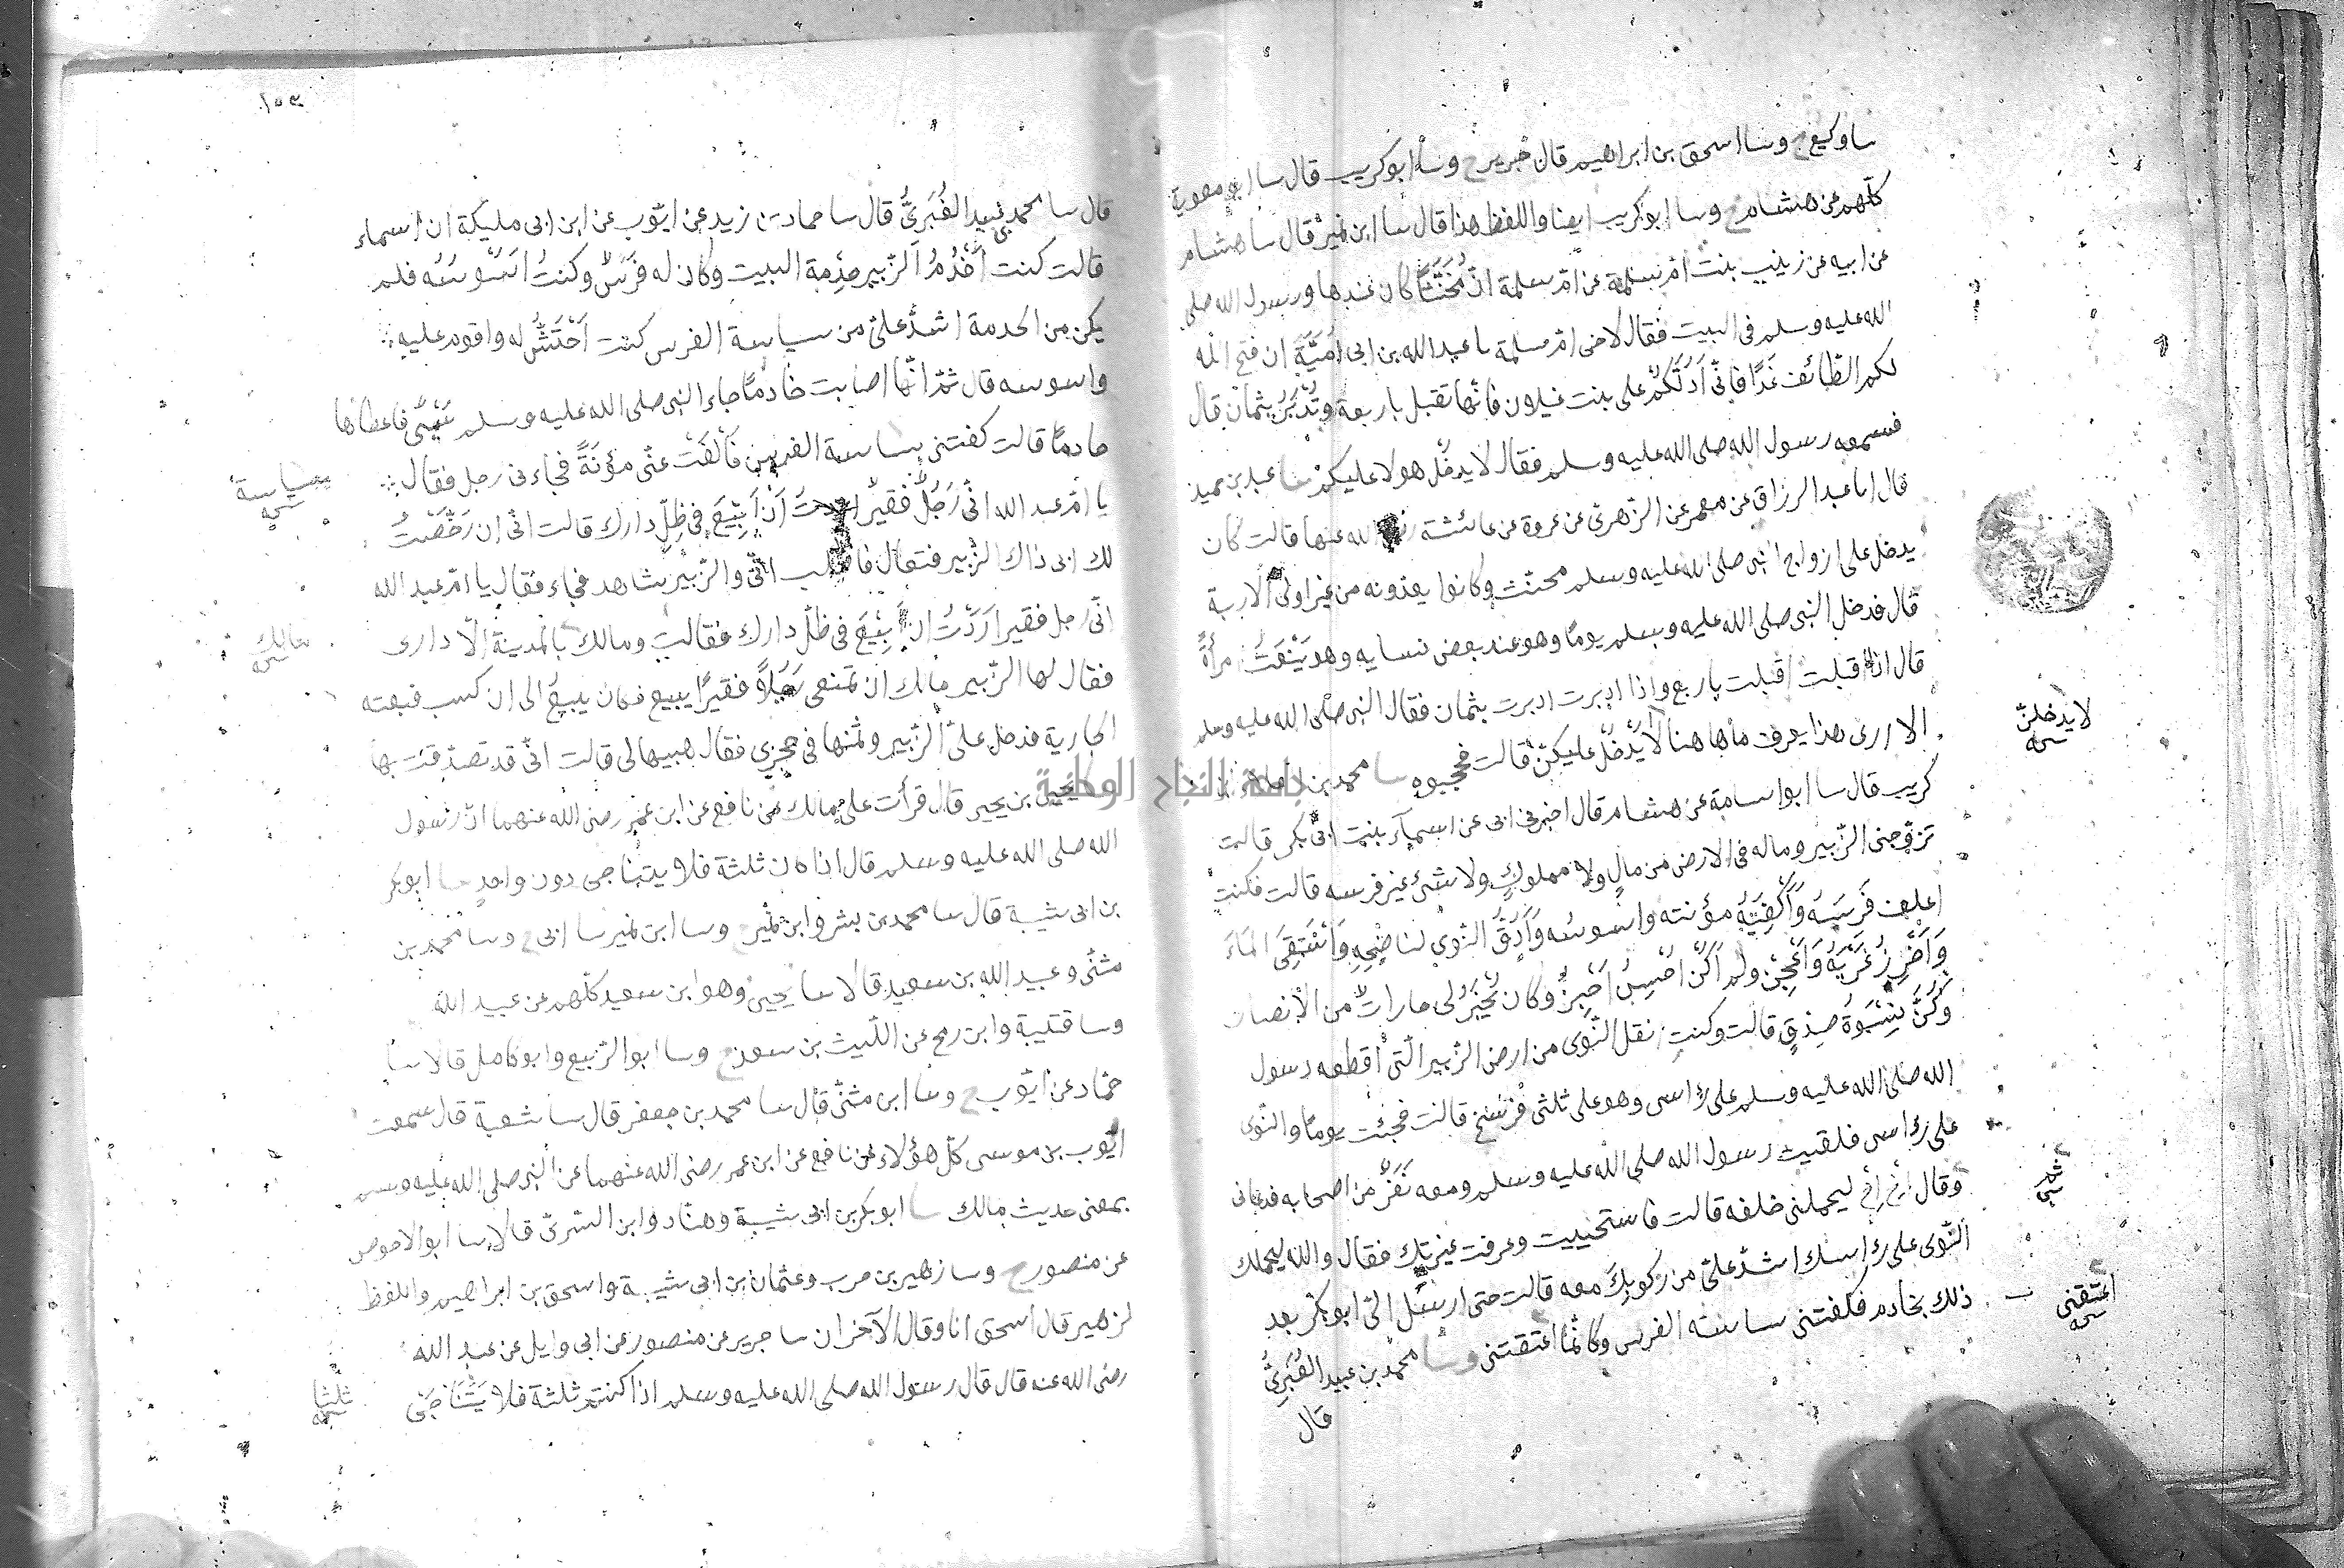 سا وكيع ح وسا اسحق بن ابراهيم قال جرير ح وسا ابو كريب قال سا ابو معوية
كلهم عن هشام ح وسا ابو كريب ايضا واللفظ هذا قال سا ابن نمير قال سا هشام
عن ابيه عن زينب بنت ام سلمة عن ام سلمة انّ مُخَنَّثًا كان عندها ورسول الله صلى
الله عليه وسلم فى البيت فقال لاخى امّ سلمة يا عبد الله بن ابى اُمَيَّةَ ان فتح الله
لكم الطّائف غَدًا فانّى اَدُلّكم على بنت غيلان فانّها تقبل باربعة وتُدْبَر بثمان قال
فسمعه رسول الله صلى الله عليه وسلم فقال لا يدخل هولا عليكم سا عبد بن حميد
قال انا عبد الرزاق عن معمر عن الزهرىّ عن عروة عن عائشة رضى الله عنها قالت كان
يدخل على ازواج النبى صلى الله عليه وسلم مخنّث وكانوا يعدّونه من غير اولى الاربة
قال فدخل النبى صلى الله عليه وسلم يومًا وهو عند بعض نسايه وهو يَنْعَتُ امرأةً
قال اذا اقبلت اقبلت باربع واذا ادبرت ادبرت بثمان فقال النبى صلى الله عليه وسلم
الا ارى هذا يعرف ما ها هنا لا يَدْخُلْ عليكنّ قالت فحجبوه سا محمد بن العلاء ابو
لا يدخلنّ
نسخه
كريب قال سا ابو اسامة عن هشام قال اخبرنى ابى عن اسمآء بنت ابى بكر قالت
تزوّجنى الزّبير وماله فى الارض من مالٍ ولا مملوكٍ ولا شىءٍ غير فرسه قالت فكنت
اعلف فَرَسَهُ وَاَكْفِيَهُ مؤنته واسوسُه وَاَدُقُّ النَّوى لناضِحِهِ وَاَسْتَقِى المَاءَ
وَاَخْرِزُ غَرْبَهُ وَاَعْجِنُ ولم اَكُنْ اُحْسِنُ اَخْبِزُ وكان يَخْبِزُ لى جارات من الانصار
وَكُنَّ نِسْوَةَ صِدْقٍ قالت وكنت انقل النّوى من ارض الزّبير الّتى اقطعه رسول
الله صلى الله عليه وسلم على رأسى وهو على ثلثى فرسخ قالت فجئت يومًا والنّوى
على رأسى فلقيت رسول الله صلى الله عليه وسلم ومعه نَفَرٌ من اصحابه فدعانى
وقال اِخْ اِخْ ليحملنى خلفه قالت فاستحييت وعرفت غيرتك فقال والله لحملك
النّوى على رأسك اشدّ علىّ من ركوبِكِ معه قالت حتى ارسل الىّ ابو بكر بعد
ذلك بخادم فكفتنى ساسته الفرس وكانّما اعتقتنى وسا محمد بن عبيد الغُبَرِىُّ
اعتقنى
نسخه
قال
١٥٣
قال سا محمد بن عبيد الغُبَرِىُّ قال سا حماد بن زيد عن ايّوب عن ابن ابى مليكة ان اسماء
قالت كنت اَخْدُمُ الزّبير خِدْمة البيت وكان له فَرَسٌ وكنتُ اَسُوسُه فلم
يكن من الخدمة اشدّ علىّ من سياسة الفرس كنت اَحْتَشُّ له واقوم عليه
واسوسه قال ثمّ انّها اصابت خادمًا جاء النبى صلى الله عليه وسلم سَبْىٌ فاعطاها
خادمًا قالت كفتنى ساسة الفرس فَاَلْقَتْ عنّى مؤنَةً فجاءنى رجل فقال
سياسة
نسخه
يا امّ عبد الله انّى رَجُلٌ فقيرٌ اردت اَنْ اَبِيْعَ فى ظِلِّ دارك قالت انّى ان رَخَّصْتُ
لك ابى ذاك الزّبير فتعال فاطلب الىّ والزّبير شاهد فجاء فقال يا امّ عبد الله
انّى رجل فقير اَرَدْتُ ان اَبِيْعَ فى ظلّ دارك فقالت ومالك بالمدينة الّا دارى
مالك
نسخه
فقال لها الزّبير مالك ان تمنعى رَجُلاً فقيرًا يبيع فكان يبيعُ الى ان كسب فبعته
الجارية فدخل علىّ الزّبير وثمنها فى حجرى فقال هبيها لى قالت انّى قد تصدّقت بها
يحيى بن يحيى قال قرأت على مالك عن نافع عن ابن عمر رضى الله عنهما انّ رسول
الله صلى الله عليه وسلم قال اذا كان ثلثة فلا يتناجى دون واحدٍ سا ابو بكر
بن ابى شيبة قال سا محمد بن بشر وابن نمير ح وسا ابن نمير سا ابى ح وسا محمد بن
مثنّى وعبيد الله بن سعيد قالا سا يحيى وهو ابن سعيد كلّهم عن عبيد الله
وسا قتيبة وابن رمح عن اللّيث بن سعد ح وسا ابو الرّبيع وابو كامل قالا سا
حمّاد عن ايّوب ح وسا ابن مثنّى قال سا محمد بن جعفر قال سا شعبة قال سمعت
ايّوب بن موسى كلّ هؤلاء عن نافع عن ابن عمر رضى الله عنهما عن النبى صلى الله عليه وسلم
بمعنى حديث مالك سا ابو بكر بن ابى شيبة وهنّاد وابن السّرىّ قالا سا ابو الاحوص
عن منصور ح وسا زهير بن حرب وعثمان بن ابى شيبة واسحق بن ابراهيم واللفظ
لزهير قال اسحق انا وقال الآخران سا جرير عن منصور عن ابى وايل عن عبد الله
رضى الله عنه قال قال رسول الله صلى الله عليه وسلم اذا كنتم ثلثة فلا يَتَنَاجَى
ثلثا
نسخه
جامعة النجاح الوطنية